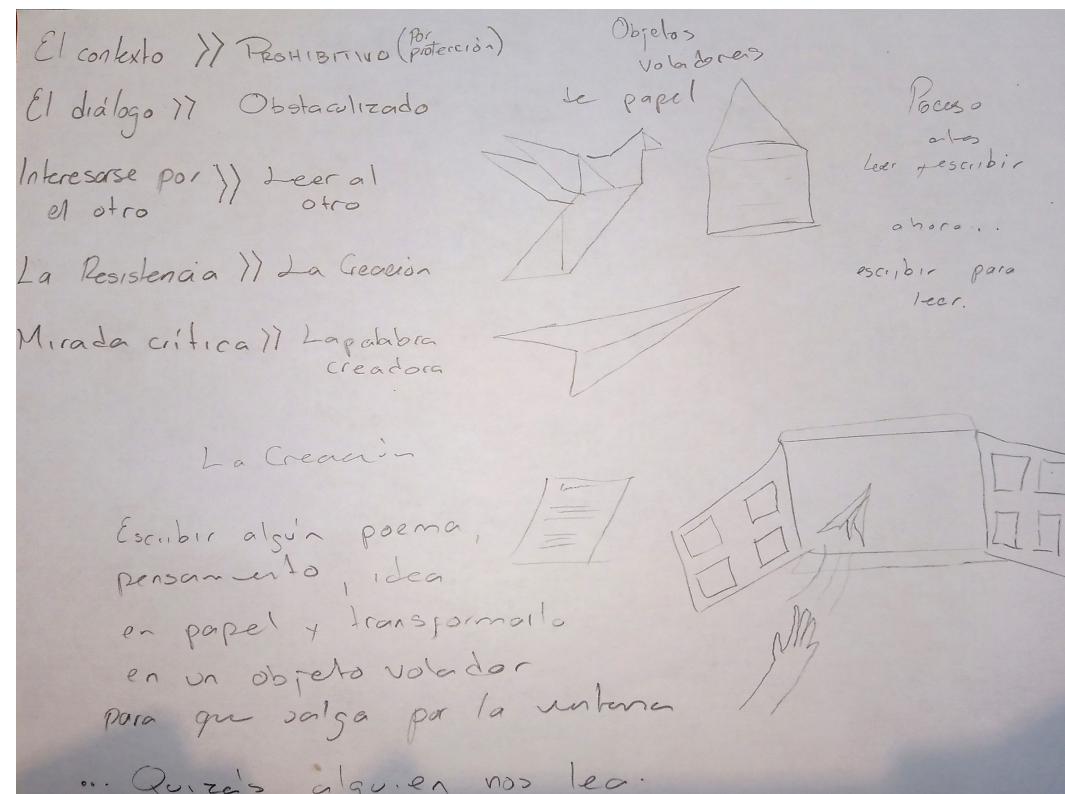 El contexto >> PROHIBITIVO (Por protección)
El diálogo >> Obstaculizado
Interesarse por >> Leer al
el otro otro
La Resistencia >> La Creación
Mirada crítica >> La palabra
creadora
Objetos
voladores
de papel
Proceso
antes
Leer + escribir
ahora...
escribir para
leer.
La Creación
Escribir algún poema,
pensamiento, idea
en papel y transformarlo
en un objeto volador
para que salga por la ventana
... Quizás alguien nos lea.